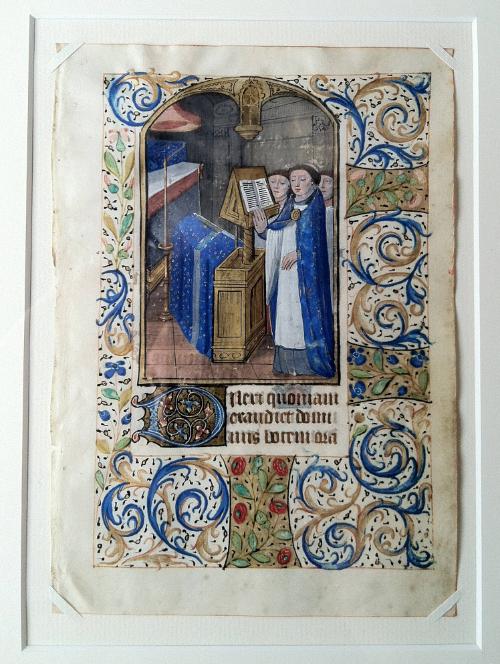 Dilexi quoniam
exaudiet domi
nus vocem ora